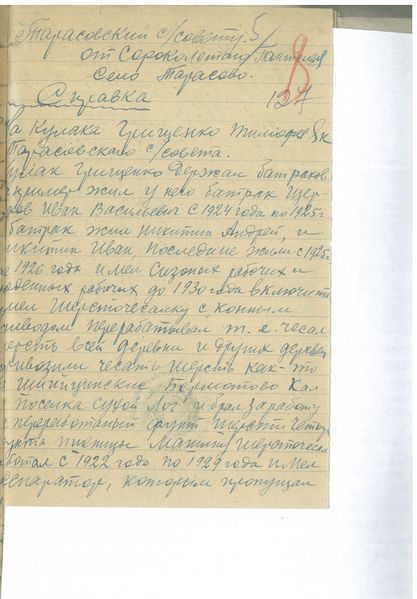 Тарасовский с/совету
от Сороколетова Пантелея
село Тарасово.
8
127
Справка
на Кулака Грищенко Тимофея
Тарасовского с/совета.
кулак Грищенко Держал батраков
пример жил у него батрак Щер-
ков Иван Васильевич с 1924 года по 1925 г
батрак жил Никитин Андрей, и
Никитин Иван, последние жили с 1925
1926 года имел сизоных рабочих и
поденных рабочих до 1930 года включит
имел Шерсточесалку с конным
приводом перерабатывал т. е. чесал
шерсть всей деревни и других деревен
привозили чесать шерсть как-то
Шипицинские, Бормотово
поселка Сухой Лог и брал за работу
переработаный фунт шерсти
фунта пшеницы Машина шерсточесал
работал с 1922 года по 1929 года имел
сепаратор, которым пропущал